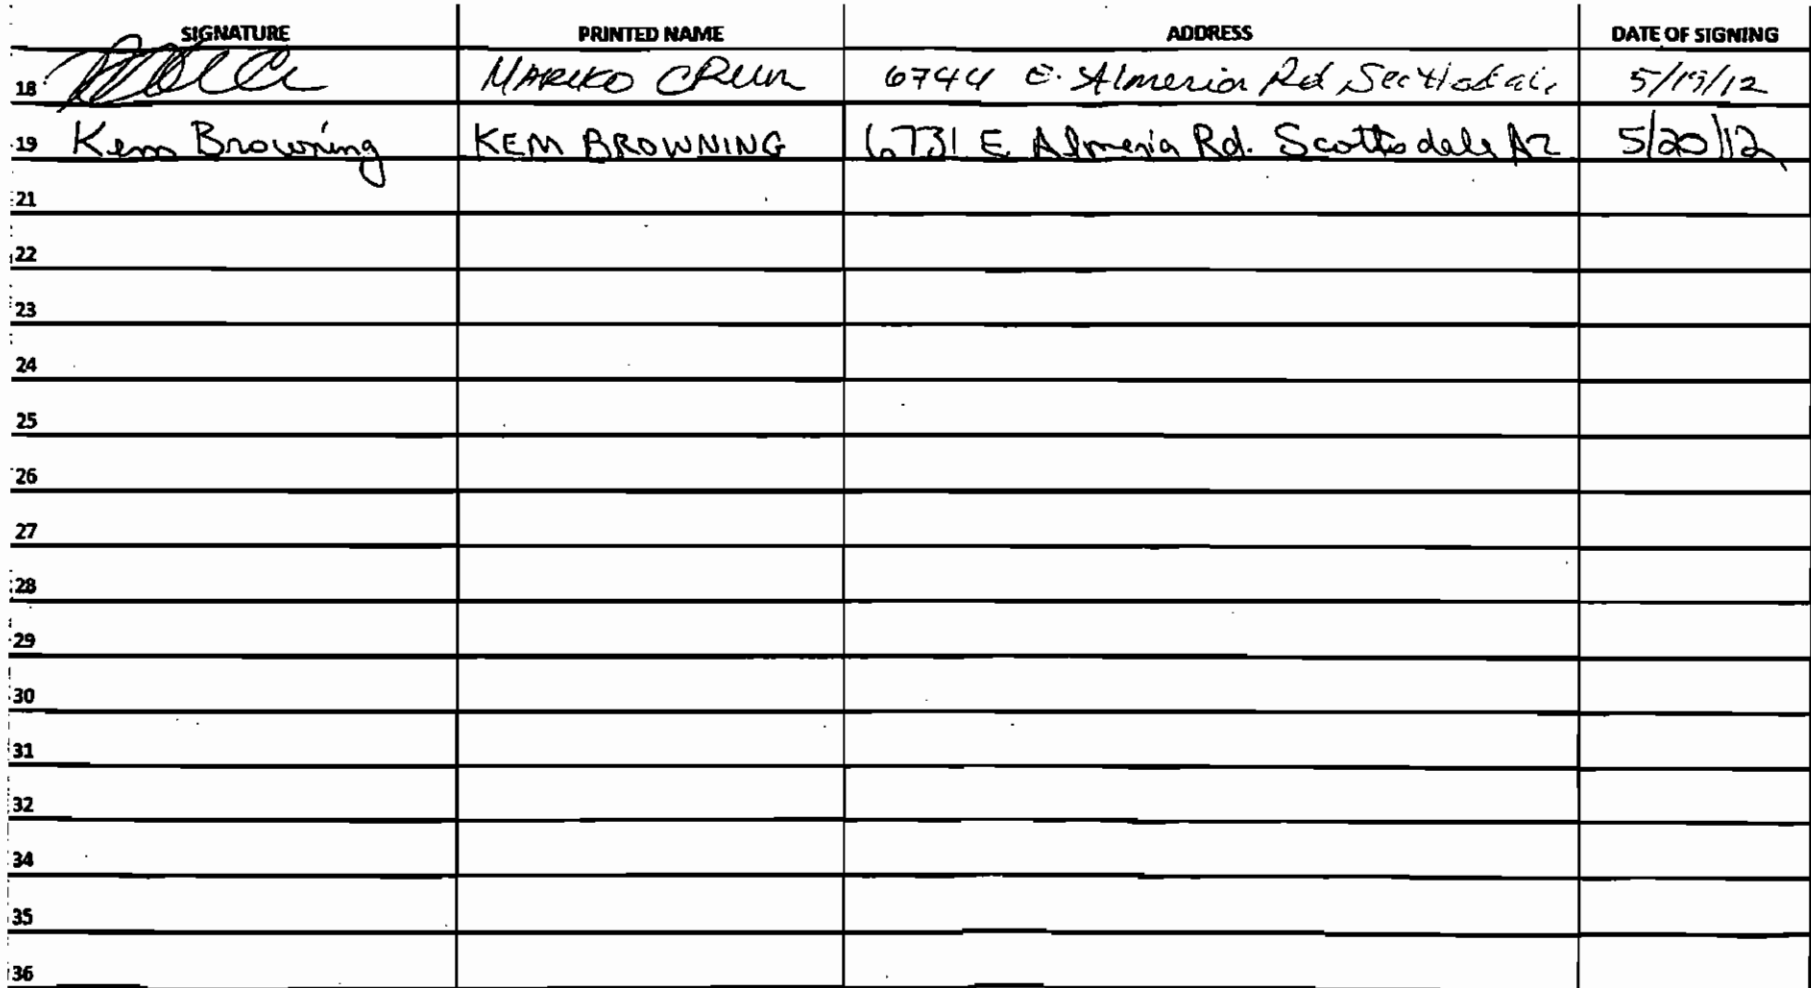 SIGNATURE PRINTED NAME ADDRESS DATE OF SIGNING
18 MARIKO 6744 E. Almeria Rd 5/19/12
19 Kem Browning KEM BROWNING 6731 E Almeria Rd. Scottsdale AZ 5/20/12
21
22
23
24
25
26
27
28
29
30
31
32
34
35
36